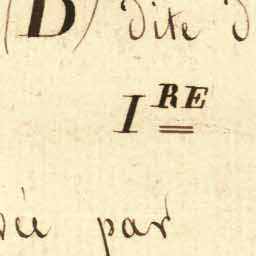 (D) dite d
I RE
par